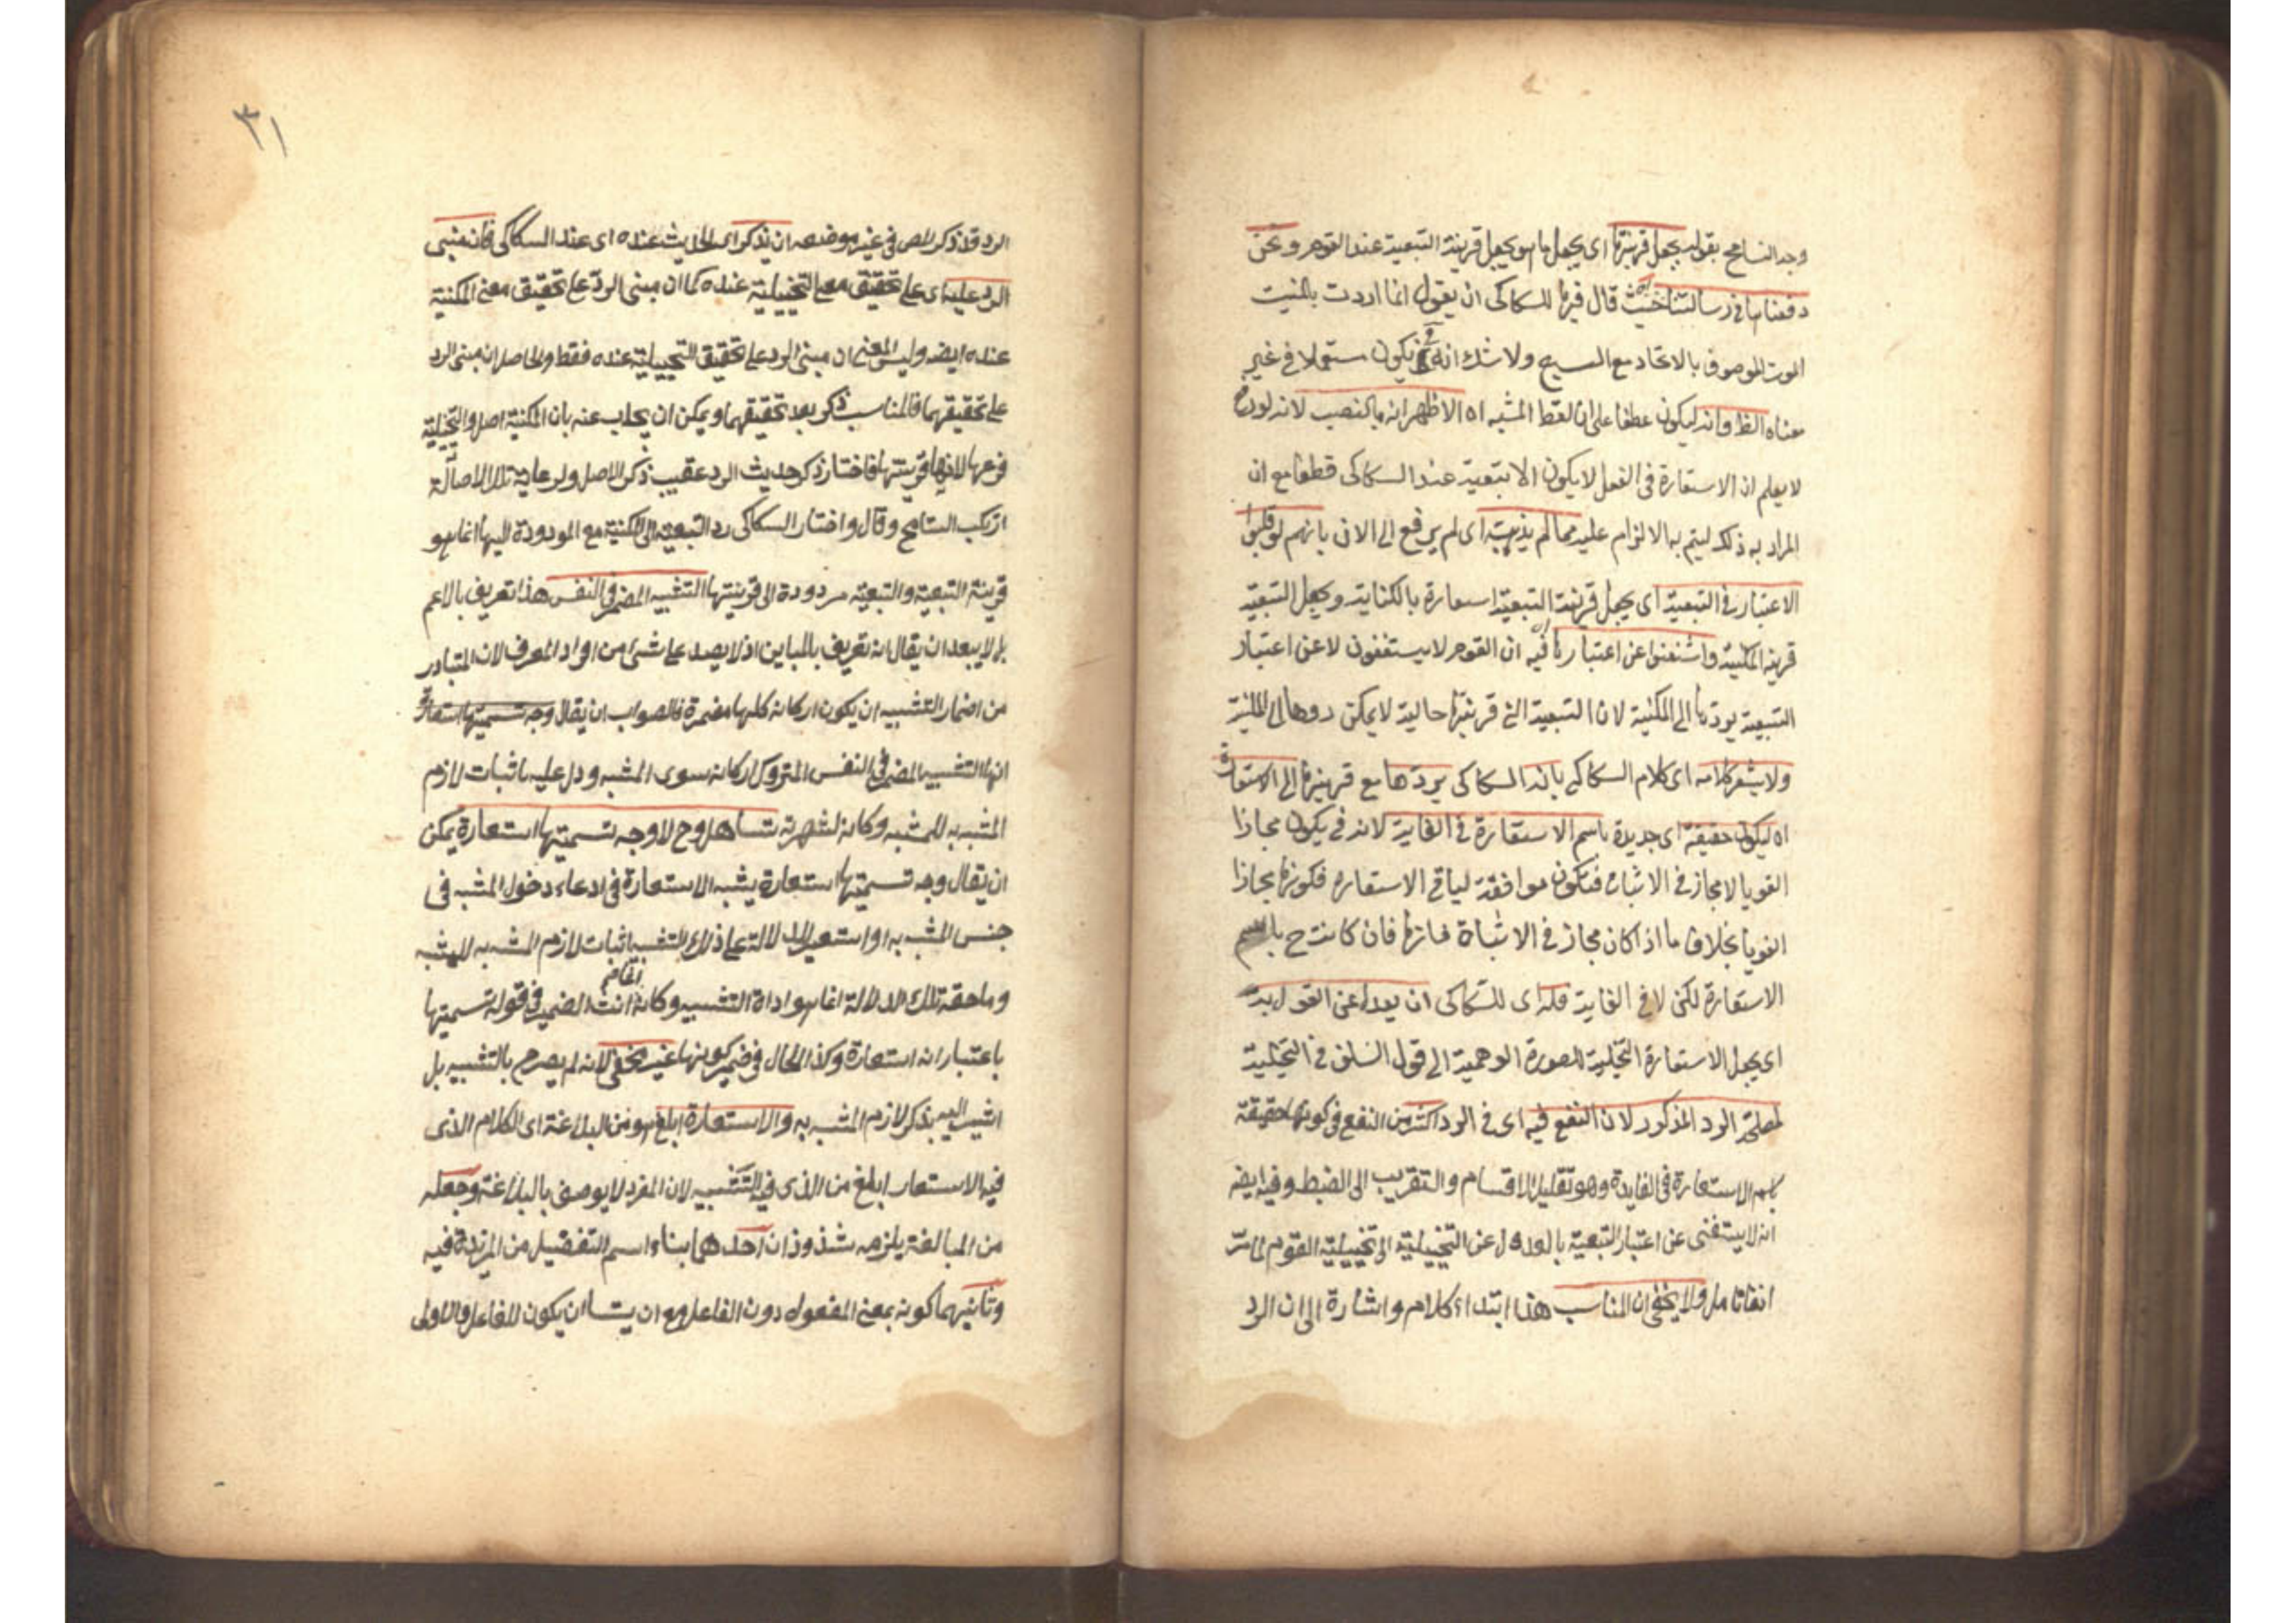 وجد التسامح بقوله يجعل قرينتها اى يجعل ما هو يجعل قرينة التبعية عند القوم ونحن
دفعناها فى رسالتنا حيث قال فيها للسكاكى ان يقول انما اردت بالمنية
الموت الموصوف بالاتحاد مع السبع ولا شك انه ح يكون مستعملا فى غير
معناه الظ وانه ليكون عطفا على ان لفظ المشبه اه الاظهر انه بالنصب لانه
لا يعلم ان الاستعارة فى الفعل لا يكون الا تبعية عند السكاكى قطعا مع ان
المراد به ذلك ليتم به الالزام عليه مما لم يذهب اى لم يرفع الى الان بانهم لو قلبوا
الاعتبار فى التبعية اى يجعل قرينة التبعية استعارة بالكناية ويجعل التبعية
قرينة المكنية واستغنوا عن اعتبارها فيه ان القوم لا يستغنون لا عن اعتبار
التبعية بردها الى المكنية لان التبعية التى قرينتها حالية لا يمكن ردها الى المكنية
ولا يشعر كلامه اى كلام السكاكى بانه السكاكى يردها مع قرينتها الى الاستعارة
اه ليكون حقيقة اى جديرة باسم الاستعارة فى الغاية لانه فى يكون مجازا
لغويا لا مجاز فى الاثبات فتكون موافقة لباقى الاستعارة فكونها مجازا
لغويا بخلاف ما اذا كان مجاز فى الاثباة فانها فان كانت ح باسم
الاستعارة لكن لا فى الغاية فله اى للسكاكى ان يعدل عن القول به
اى يجعل الاستعارة التخيلية للصورة الوهمية الى قول السلف فى التخيلية
لمصلحة الرد المذكور لان النفع فيه اى فى الرد اكثر من النفع فى كونها حقيقة
باسم الاستعارة فى الغاية وهو تقليل الاقسام والتقريب الى الضبط وفيه ايضه
انه لا يستغنى عن اعتبار التبعية بالعدول عن التخييلية الى تخييلية القوم لما مر
انفا تامل ولا يخفى ان المناسب هذا ابتداء كلام واشارة الى ان الرد
٣١
الرد قد ذكر المص فى غير موضعه ان يذكر اى الحديث عنده اى عند السكاكى فان مبنى
الرد عليه اى على تحقيق معنى التخييلية عنده كما ان مبنى الرد على تحقيق معنى المكنية
عنده ايضه وليس المعنى ان مبنى الرد على تحقيق التخييلية عنده فقط والحاصل ان مبنى الرد
على تحقيقهما فالمناسب ذكر بعد تحقيقهما ويمكن ان يجاب عنه بان المكنية اصل والتخيلية
فرعها لانها قرينتها فاختار ذكر حديث الرد عقيب ذكر الاصل ولرعاية تلك الاصالة
ارتكب التسامح وقال واختار السكاكى رد التبعية الى المكنية مع المردودة اليها انما هو
قرينة التبعية والتبعية مردودة الى قرينتها التشبيه المضمر فى النفس هذا تعريف بالاعم
بل لا يبعد ان يقال انه تعريف بالمباين اذ لا يصد على شئ من افراد المعرف لان المتبادر
من اضمار التشبيه ان يكون اركانه كلها مضمرة فالصواب ان يقال وجه تسميتها استعارة
انها التشبيه المضمر فى النفس المتروك اركانه سوى المشبه ودل عليه باثبات لازم
المشبه به للمشبه وكانه لشهرته تساهل وح لا وجه تسميتها استعارة يمكن
ان يقال وجه تسميتها استعارة يشبه الاستعارة فى ادعاء دخول المشبه فى
جنس المشبه به او استعير للدلالة على ذلك التشبيه اثبات لازم المشبه به للمشبه
وما حقه تلك الدلالة انما هو اداة التشبيه وكانه انث الضمير فى قوله تسميتها
باعتبار انه استعارة وكذا الحال فى ضمير كونها غير مخفى لانه لم يصرح بالتشبيه بل
اشير اليه بذكر لازم المشبه به والاستعارة ابلغ هو من البلاغة اى الكلام الذى
فيه الاستعار ابلغ من الذى فيه التشبيه لان المفرد لا يوصف بالبلاغة وجعله
من المبالغة يلزمه شذوذان احدهما بناء اسم التفضيل من المزيدة فيه
وثانيهما كونه بمعنى المفعول دون الفاعل مع ان يتسا ان يكون للفاعل والاولى